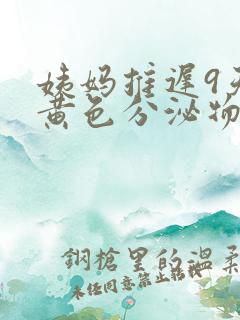 姨妈推迟9天
黄色分泌物
鋼槍里的温柔
未经同意禁止转载